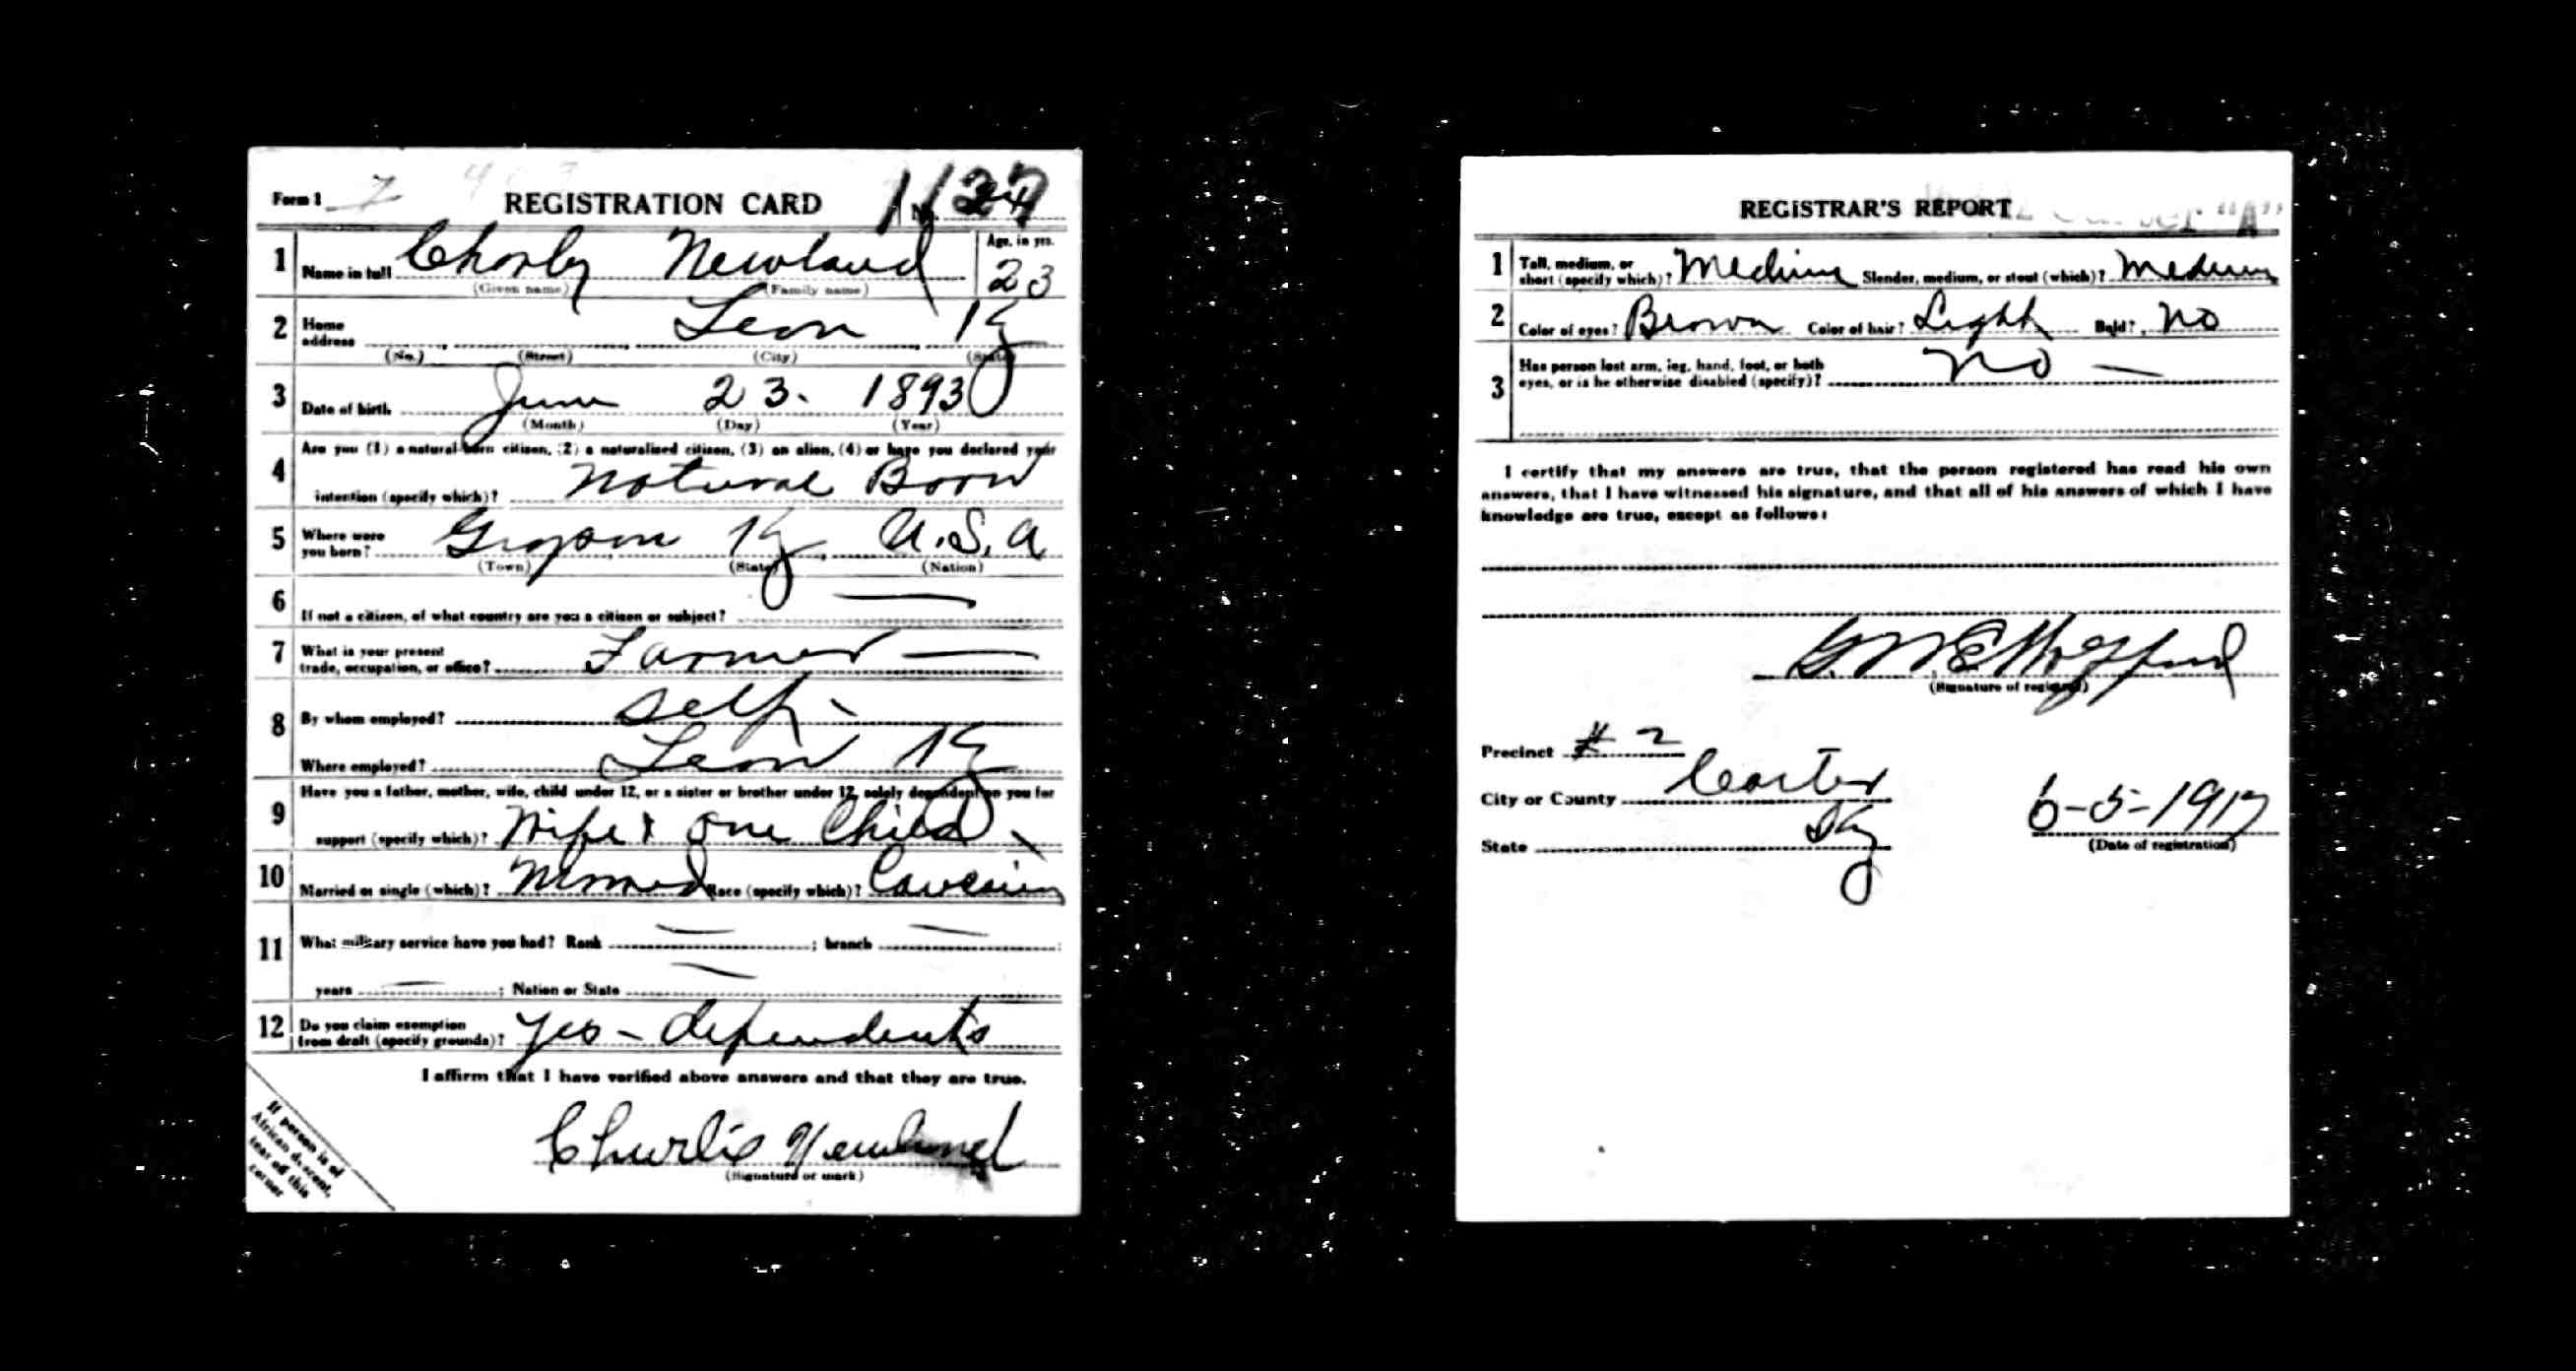 Form 1 REGISTRATION CARD No. 1137
1 Name in full Charley Newland Age, in yrs. 23
(Given name) (Family name)
2 Home address Leon Ky
(No.) (Street) (City) (State)
3 Date of birth June 23. 1893
(Month) (Day) (Year)
4 Are you (1) a natural-born citizen, (2) a naturalized citizen, (3) an alien, (4) or have you declared your
intention (specify which)? Natural Born
5 Where were you born? Grayson Ky U.S.A
(Town) (State) (Nation)
6 If not a citizen, of what country are you a citizen or subject? —
7 What is your present trade, occupation, or office? Farmer —
8 By whom employed? Self
Where employed? Leon Ky
9 Have you a father, mother, wife, child under 12, or a sister or brother under 12, solely dependent on you for
support (specify which)? Wife & One Child
10 Married or single (which)? Married Race (specify which)? Caucasian
11 What military service have you had? Rank — ; branch — ;
years — ; Nation or State —
12 Do you claim exemption from draft (specify grounds)? Yes - dependents
I affirm that I have verified above answers and that they are true.
Charlie Newland
(Signature or mark)
If person is of
African descent,
tear off this
corner
REGISTRAR'S REPORT
1 Tall, medium, or short (specify which)? Medium Slender, medium, or stout (which)? Medium
2 Color of eyes? Brown Color of hair? Light Bald? No
3 Has person lost arm, leg, hand, foot, or both eyes, or is he otherwise disabled (specify)? No —
I certify that my answers are true, that the person registered has read his own
answers, that I have witnessed his signature, and that all of his answers of which I have
knowledge are true, except as follows:
(Signature of registrar)
Precinct # 2
City or County Carter
State Ky
6-5-1917
(Date of registration)